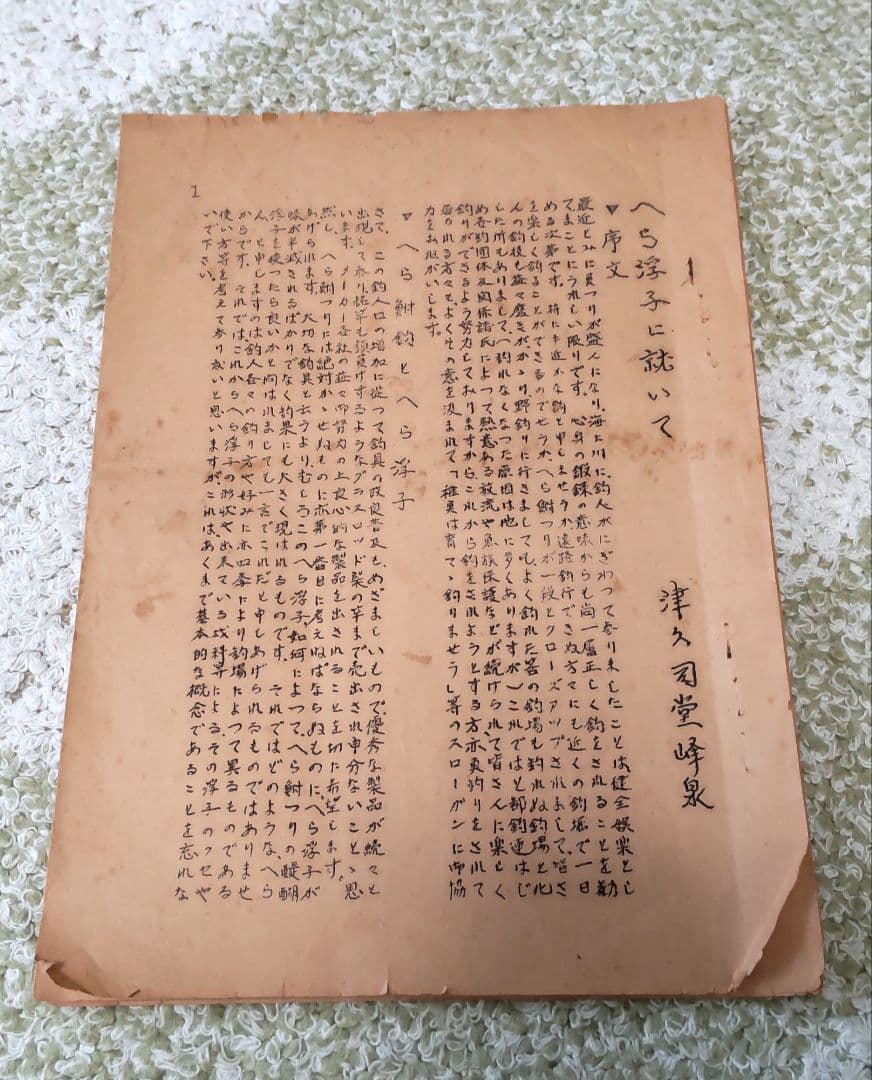 へら浮子に就いて
津久司堂峰泉
▼序文
最近とみに魚つりが盛んになり、海に川に、釣人がにぎわつて参りましたことは、健全娯楽とし
てまことにうれしい限りです。心身の鍛錬の意味からも尚一層正しく釣をされることを勧
める次第です。特に手近かな釣と申しませうか遠路釣行できぬ方々にも近くの釣堀で一日
を楽しく釣ることができるのでせうか、へら鮒つりが一段とクローズアップされまして、皆さ
んの釣技も益々磨きがかゝり、野釣りに行きましても、よく釣れた筈の釣場も釣れぬ釣場と化
した所もありまして、へ釣れなくなつた原因は他に多くありますが）これではと都釣連はじ
め各釣団体及関係諸氏によつて熱意ある放流や魚族保護などが続けられ、皆さんに楽しく
釣りができるよう努力しておりますから、これから釣をされようとする方亦魚釣りをされて
居られる方々も、よくその意を汲まれて「稚魚は育てゝ釣りませう」等のスローガンに御協
力をお願がいします。
▼へら鮒釣とへら浮子
さて、この釣人口の増加に従つて釣具の改良普及も、めざましいもので、優秀な製品が続々と
出現して参り、悟竿も顔負けするようなグラスロッド製の竿まで売出され申分ないことゝ思
います。メーカー各社の益々御努力の上良心的な製品を出されることを切に希望します。
然し、へら鮒つりには絶対かゝせぬものに亦第一番目に考えねばならぬものに、へら浮子が
あげられます。大切な釣具と云うより、むしろこのへら浮子、如何によつて、へら鮒つりの醍醐
味が半減されるばかりでなく釣果にも大きく現はれるものです。それではどのような、へら
浮子を使つたら良いかと問はれましても一言でこれだと申しあげられるものではありませ
ん、と申しますのは釣人各々の釣り方や好みに亦四季により釣場によつて異るものである
からです。それでは、これからへら浮子の形状や出来ている材料等による、その浮子のクセや
使い方等を考えて参り度いと思いますが、これは、あくまで基本的な概念であることを忘れな
いで下さい。
1